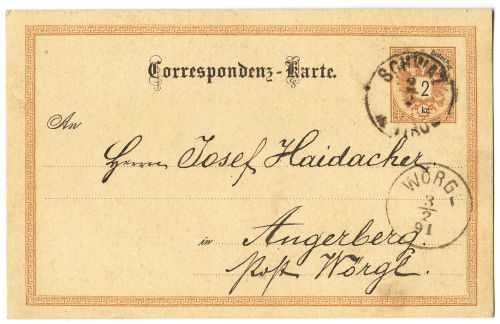 Correspondenz-Karte.
SCHWAZ
2
2
kr.
TIROL
An
Herrn Josef Haidacher
WÖRGL
3/2
91
in Angerberg.
Post Wörgl.